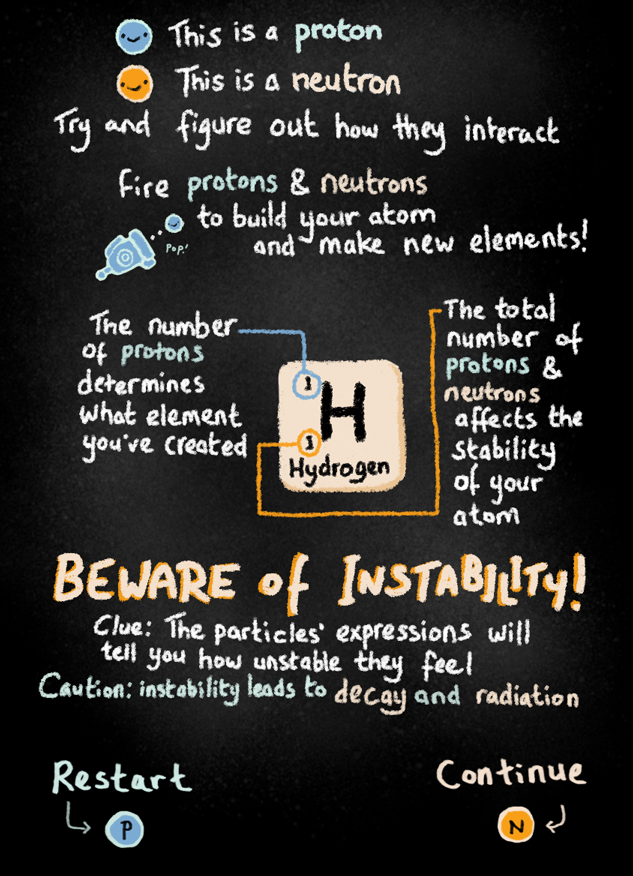 This is a proton
This is a neutron
Try and figure out how they interact
Fire protons & neutrons
to build your atom
and make new elements!
Pop!
The number
of protons
determines
what element
you've created
1
H
1
Hydrogen
The total
number of
protons &
neutrons
affects the
stability
of your
atom
BEWARE of INSTABILITY!
Clue: The particles' expressions will
tell you how unstable they feel
Caution: instability leads to decay and radiation
Restart
P
Continue
N